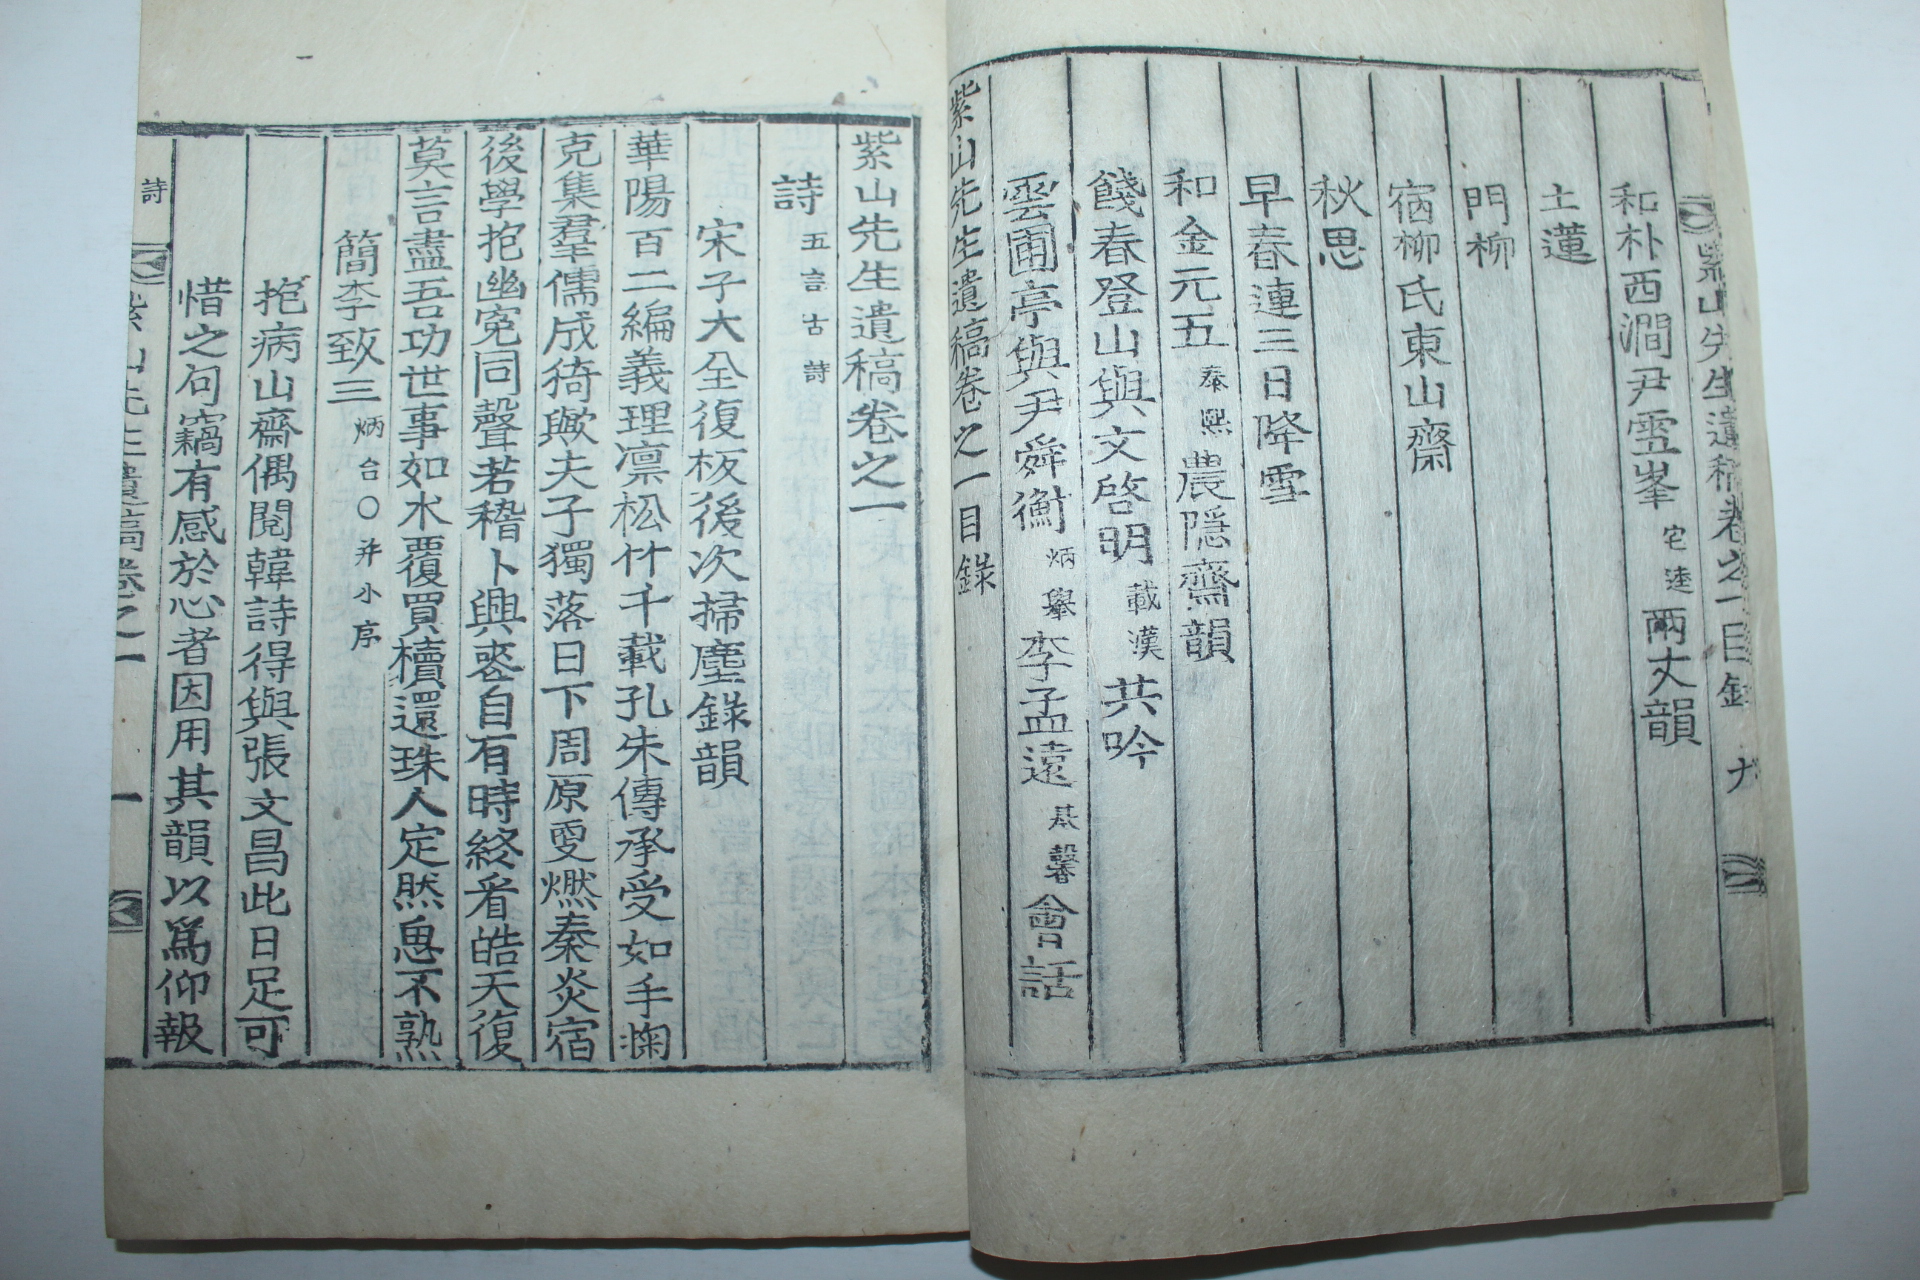 紫山先生遺稿卷之一目錄 九
和朴西澗尹雲峯宅逵兩丈韻
土蓮
門柳
宿柳氏東山齋
秋思
早春連三日降雪
和金元五泰熙農隱齋韻
餞春登山與文啓明載漢共吟
雲圃亭與尹舜衡炳舉李孟遠馨會話
紫山先生遺稿卷之一目錄
紫山先生遺稿卷之一
詩五言古詩
宋子大全復板後次掃塵錄韻
華陽百二編義理凛松竹千載孔朱傳承受如手掬
克集羣儒成猗歟夫子獨落日下周原更燃秦炎宿
後學抱幽寃同聲若稽卜興喪自有時終看皓天復
莫言盡吾功世事如水覆買櫝還珠人定然思不熟
簡李致三炳台○并小序
抱病山齋偶閱韓詩得與張文昌此日足可
惜之句竊有感於心者因用其韻以爲仰報
詩 紫山先生遺稿卷之一 一